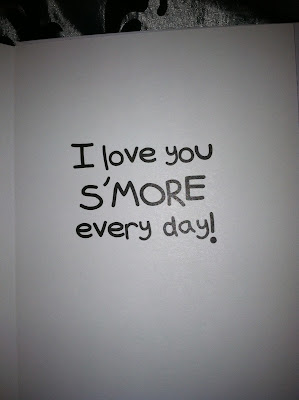 I love you
S'MORE
every day!